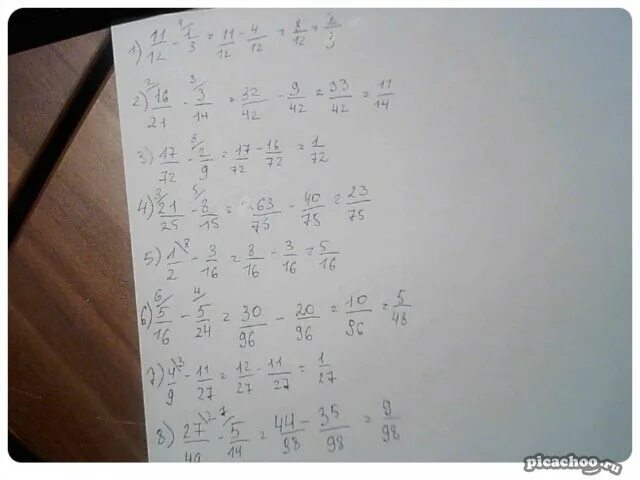 1) 11/12 - 4/ 1/3 = 11/12 - 4/12 = 8/12 = 2/3
2) 2/ 16/21 - 3/ 3/14 = 32/42 - 9/42 = 33/42 = 11/14
3) 17/72 - 8/ 2/9 = 17/72 - 16/72 = 1/72
4) 3/ 21/25 - 5/ 8/15 = 63/75 - 40/75 = 23/75
5) 1/2 \8 - 3/16 = 8/16 - 3/16 = 5/16
6) 6/ 5/16 - 4/ 5/24 = 30/96 - 20/96 = 10/96 = 5/48
7) 4/9 \3 - 11/27 = 12/27 - 11/27 = 1/27
8) 27/49 \2 - 7/ 5/14 = 44/98 - 35/98 = 9/98
picachoo.ru